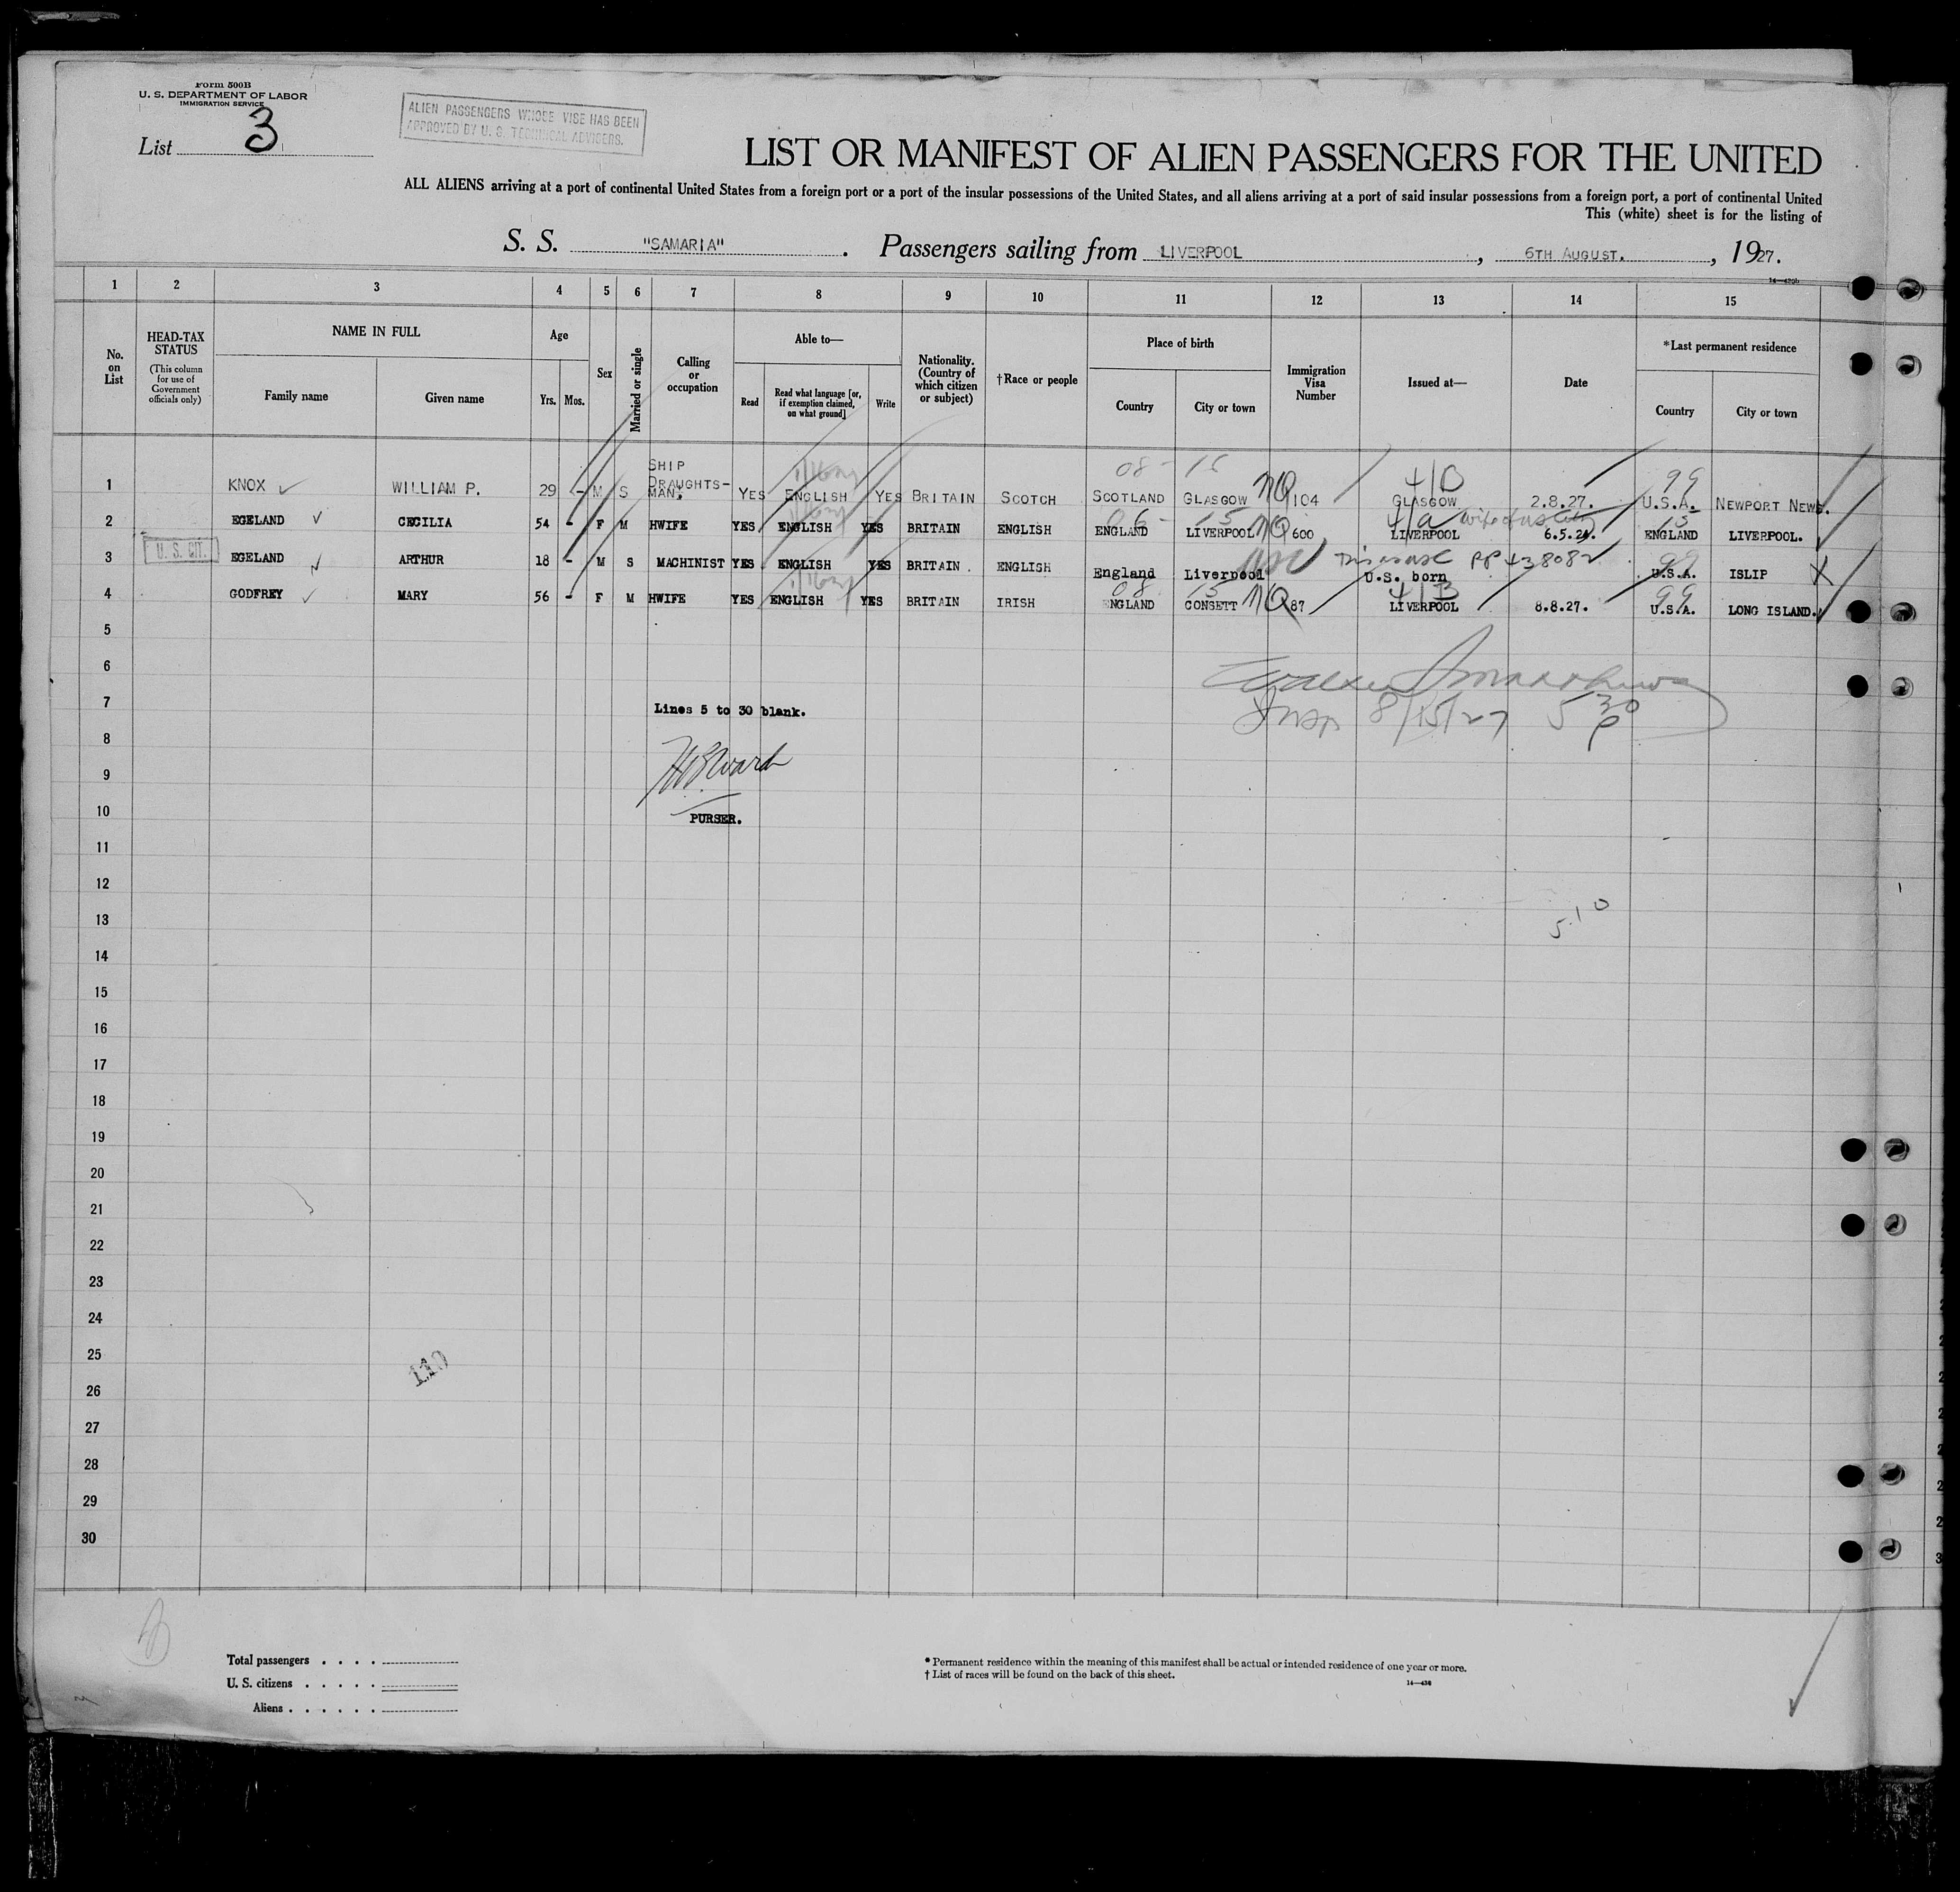 Form 500B
U. S. DEPARTMENT OF LABOR
IMMIGRATION SERVICE
List 3
ALIEN PASSENGERS WHOSE VISE HAS BEEN
APPROVED BY U. S. TECHNICAL ADVISERS.
LIST OR MANIFEST OF ALIEN PASSENGERS FOR THE UNITED
ALL ALIENS arriving at a port of continental United States from a foreign port or a port of the insular possessions of the United States, and all aliens arriving at a port of said insular possessions from a foreign port, a port of continental United
This (white) sheet is for the listing of
S. S. "SAMARIA". Passengers sailing from LIVERPOOL, 6TH AUGUST., 1927.
1 2 3 4 5 6 7 8 9 10 11 12 13 14 15
No. on List
HEAD-TAX STATUS
(This column for use of Government officials only)
NAME IN FULL
Family name Given name
Age
Yrs. Mos.
Sex
Married or single
Calling or occupation
Able to—
Read
Read what language [or, if exemption claimed, on what ground]
Write
Nationality. (Country of which citizen or subject)
†Race or people
Place of birth
Country City or town
Immigration Visa Number
Issued at—
Date
*Last permanent residence
Country City or town
08 - 15 4/B 99
1 KNOX WILLIAM P. 29 - M S SHIP DRAUGHTSMAN. YES ENGLISH YES BRITAIN SCOTCH SCOTLAND GLASGOW NQ 104 GLASGOW 2.8.27. U.S.A. NEWPORT NEWS.
06 - 15 4/a wife of us city 15
2 EGELAND CECILIA 54 - F M HWIFE YES ENGLISH YES BRITAIN ENGLISH ENGLAND LIVERPOOL NQ 600 LIVERPOOL ENGLAND LIVERPOOL.
U. S. CIT.
PP 438082 99
3 EGELAND ARTHUR 18 - M S MACHINIST YES ENGLISH YES BRITAIN. ENGLISH England Liverpool U.S. born U.S.A. ISLIP X
08 15 4/B 99
4 GODFREY MARY 56 - F M HWIFE YES ENGLISH YES BRITAIN IRISH ENGLAND CONSETT NQ 87 LIVERPOOL 8.8.27. U.S.A. LONG ISLAND.
5
6
7
8
9
10
11
12
13
14
15
16
17
18
19
20
21
22
23
24
25
26
27
28
29
30
Insp 8/15/27 5 30 P
Lines 5 to 30 blank.
PURSER.
5.10
110
Total passengers
U. S. citizens
Aliens
* Permanent residence within the meaning of this manifest shall be actual or intended residence of one year or more.
† List of races will be found on the back of this sheet.